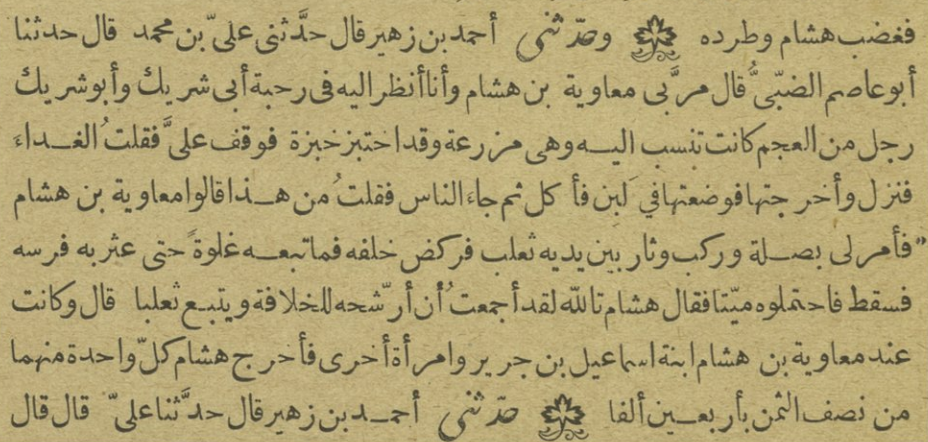 فغضب هشام وطرده وحدّثنى أحمد بن زهير قال حدَّثنى علىّ بن محمد قال حدثنا
أبو عاصم الضبّىُّ قال مر بى معاوية بن هشام وأنا أنظر اليه فى رحبة أبى شريك وأبو شريك
رجل من العجم كانت تنسب اليه وهى مزرعة وقد اختبز خبزة فوقف علىَّ فقلتُ الغداءَ
فنزل وأخرجتها فوضعتها في لَبن فأكل ثم جاء الناس فقلتُ من هذا قالوا معاوية بن هشام
”فأمر لى بصلة وركب وثار بين يديه ثعلب فركض خلفه فما تبعه غلوةً حتى عثر به فرسه
فسقط فاحتملوه ميّتا فقال هشام تالله لقد أجمعتُ أن أرشّحه للخلافة ويتبع ثعلبا قال وكانت
عند معاوية بن هشام ابنة اسماعيل بن جرير وامرأة أخرى فأخرج هشام كلّ واحدة منهما
من نصف الثمن بأربعين ألفا حدّثنى أحمد بن زهير قال حدَّثنا علىّ قال قال